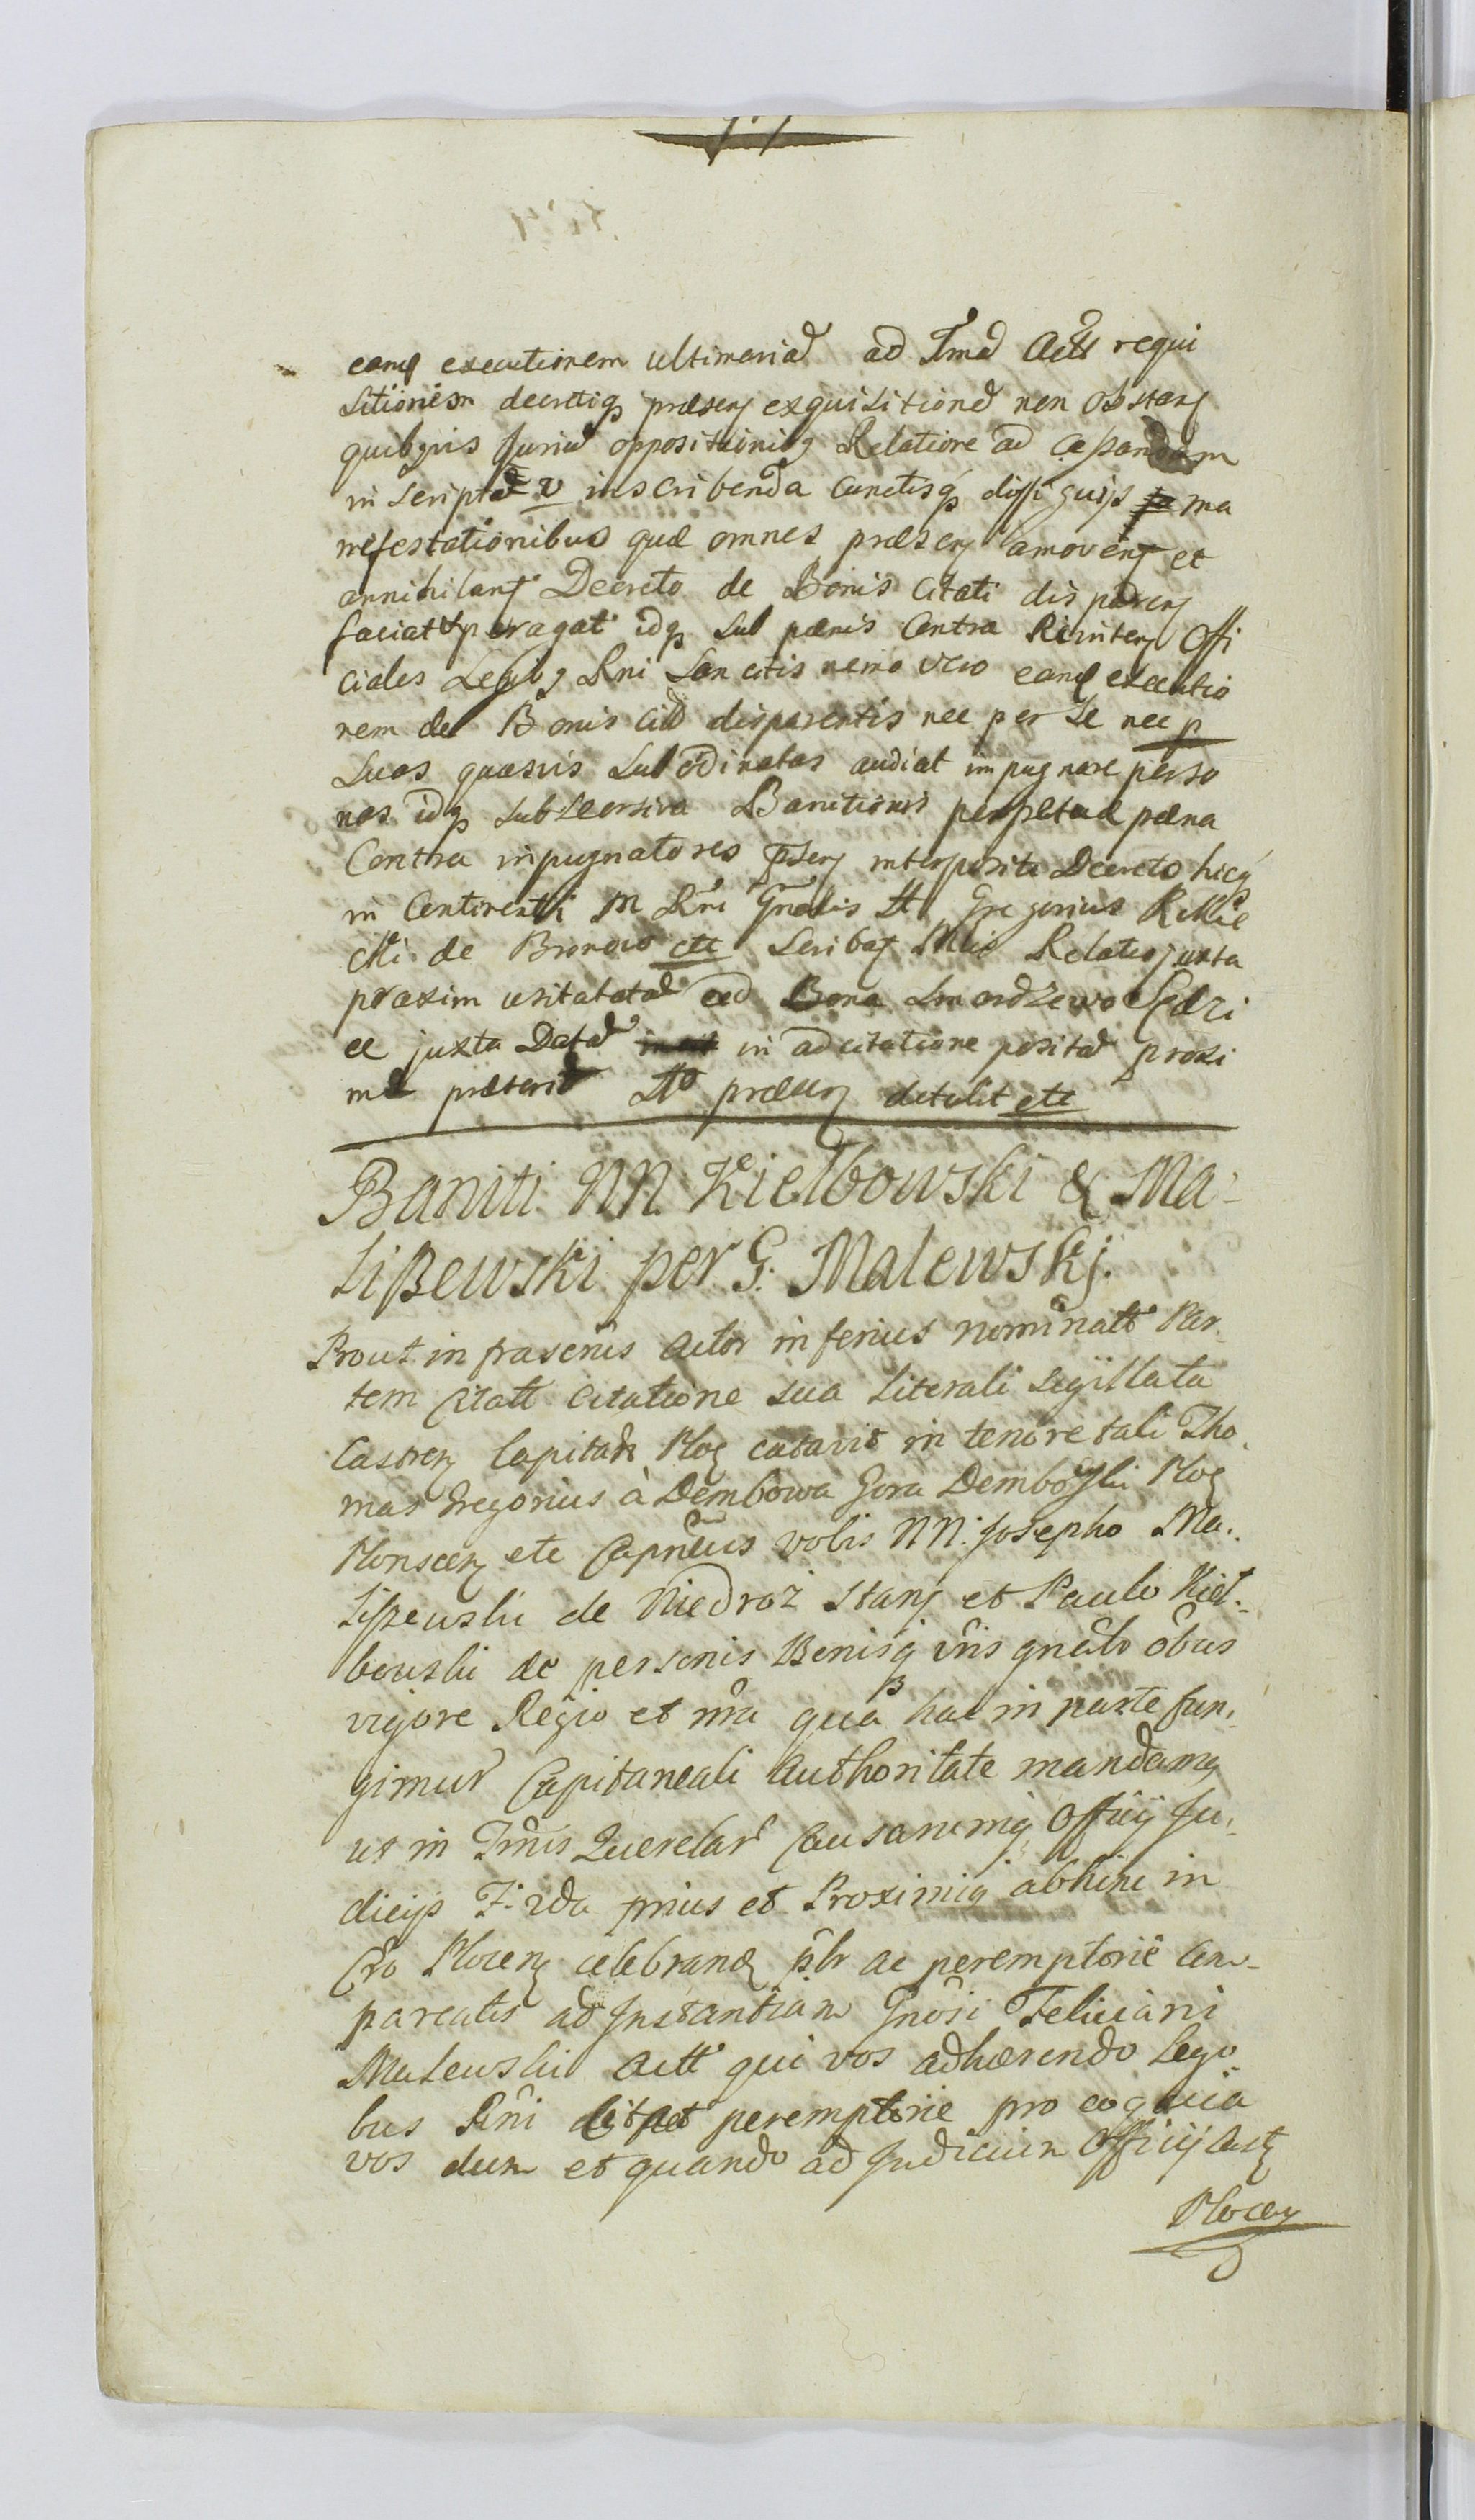 eamq executionem ultimariã ad Imã Actt requi
sitionem decretiq præsen exquisitionẽ non obstan
quibusvis Juriũ oppositionibq Relatione ad cassandam
in scriptã v inscribenda cunctisq diffugijs ma
nifestationibus quæ omnes præsen amoven et
annihilan Decreto de Bonis Citati disparen
faciat & peragat idq sub pænis Contra Reniten Offi
ciales Legibq Rni Sancitis nemo vero eamq executio
nem de Bonis Citi disparentis nec per se nec p
Suas quasvis subordinatas audiat impugnare perso
nas idq sub Banitionis perpetuæ pæna
Contra impugnatores psen interposita Decreto hicq
in Continenti M Rni Gnalis Gregorius
de Bronowo etc Relatio juxta
praxim usitatatã ad Bona Smardzewo
ee juxta Datã in adcitatione positã proxi
me præteriã præsen detulit etc
Baniti NN. Kiełbowski & Ma-
lißewski per G: Malewskj.
Prout in præsentis Actor inferius nominatt Par
tem Citatt Citatione sua Literali Sigillata
Castren Capitan Ploc citavit in tenore tali Tho
mas Gregorius à Dembowa Gora Dembowski Ploc
Plonscen etc Capneus vobis NN: Josepho Ma.
lißewski de Niedroż Stany et Paulo Kieł-
bowski de personis Bonisq vris gnalr õbus
vigore Regio et nra qua hac in parte fun,
gimur Capitaneali Authoritate mandamq
ut in Tmis Querelar Causarumq Officij Ju,
dicijs F. 2da prius et Proximiq abhinc in
Cro Plocen celebranq plr ac peremptorie Com-
pareatis ad Instantiam Gnosi Feliciani
Malewski Actt qui vos adhærendo Legi
bus Rni citat peremptorie pro eo quia
vos dum et quando ad Judicium Officij Castr
Plocen